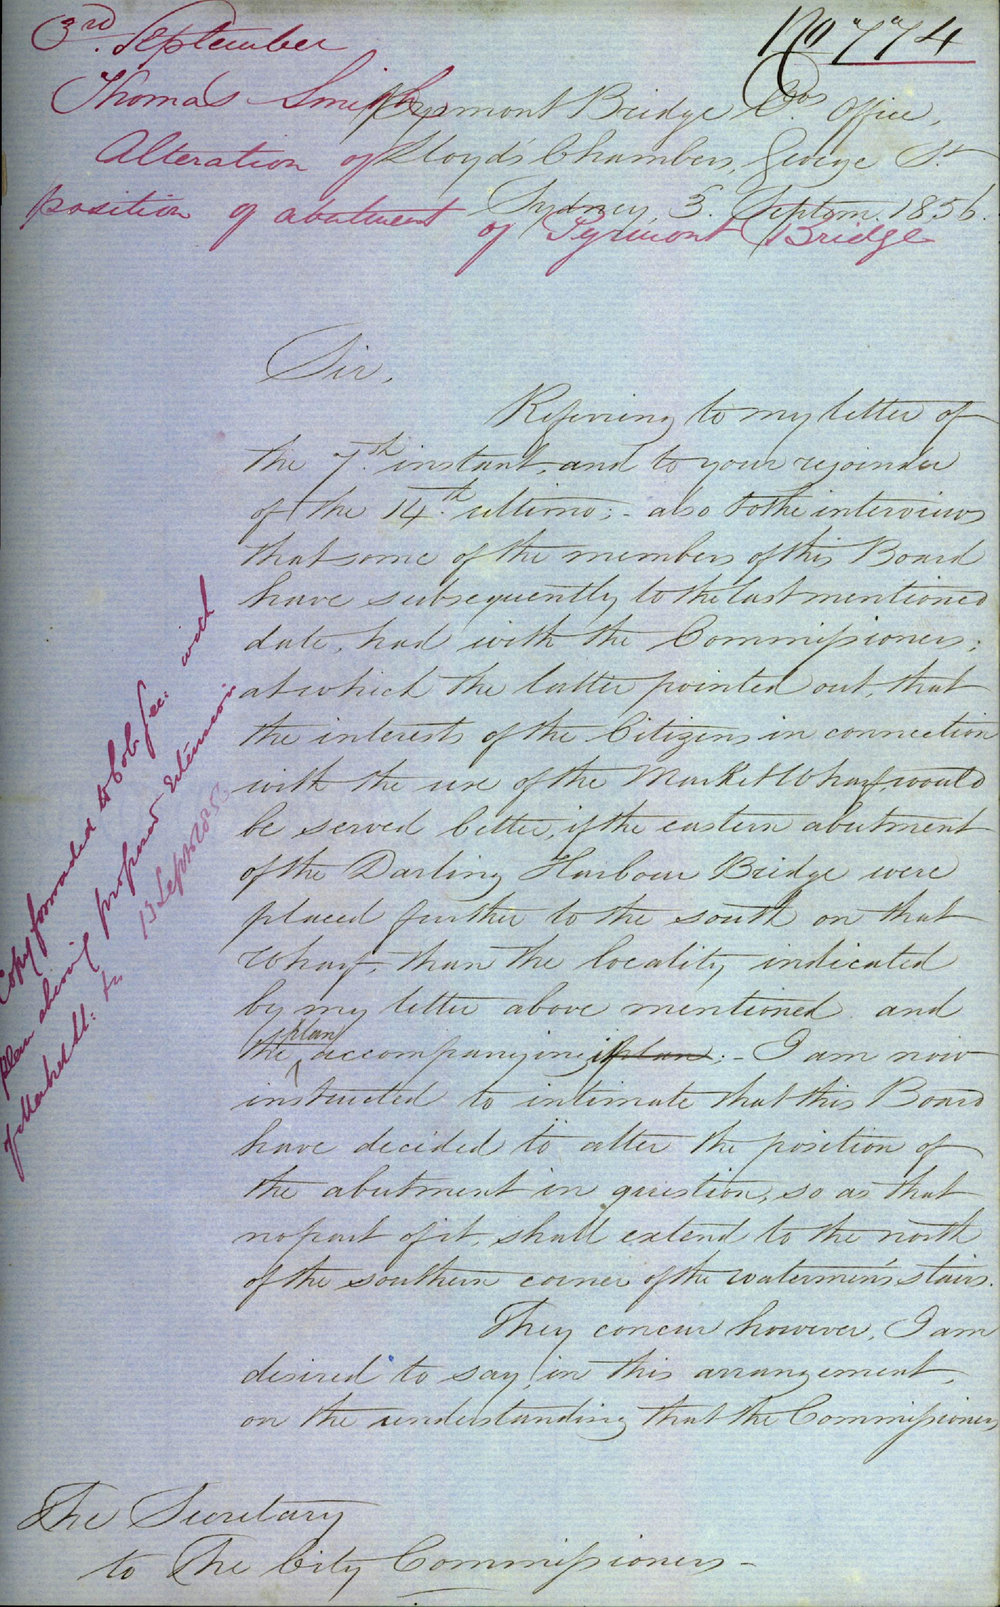 No "774"
3rd. September
Thomas Smith
Alteration of
position of abutment
of Pyrmont Bridge
Pyrmont Bridge Co's Office,
Lloyd's Chambers, George St
Sydney, 3. Septem. 1856.
Sir,
Referring to my letter of
the 7th. instant, and to your rejoinder
of the 14th. ultimo; - also to the interviews
that some of the members of this Board
have subsequently to the last mentioned
date, had with the Commissioners;
at which the latter pointed out, that
the interests of the Citizens in connection
with the use of the Market Wharf would
be served better, if the eastern abutment
of the Darling Harbour Bridge were
placed further to the south on that
Wharf, than the locality indicated
by my letter above mentioned and
the plan accompanying plan: - I am now
instructed to intimate that this Board
have decided to alter the position of
the abutment in question, so as that
no part of it, shall extend to the north
of the southern corner of the watermen's stairs.
They concur however, I am
desired to say, in this arrangement,
on the understanding that the Commissioners
The Secretary
to The City Commissioners -
Copy forwarded to Col. Sec: with
plan shewing proposed Extension
of Market Wh:
13 Sept